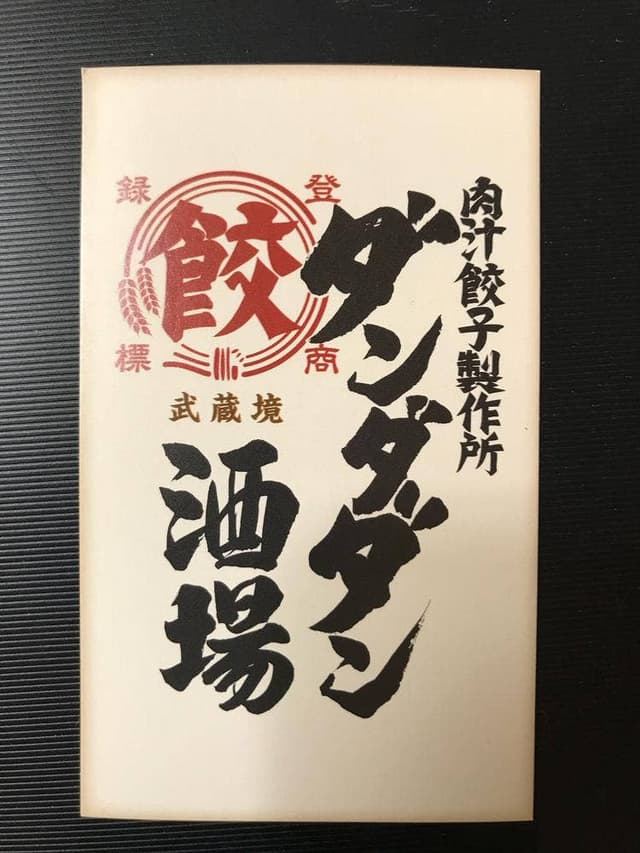 肉汁餃子製作所
ダンダダン
登録
餃
商標
武蔵境
酒場